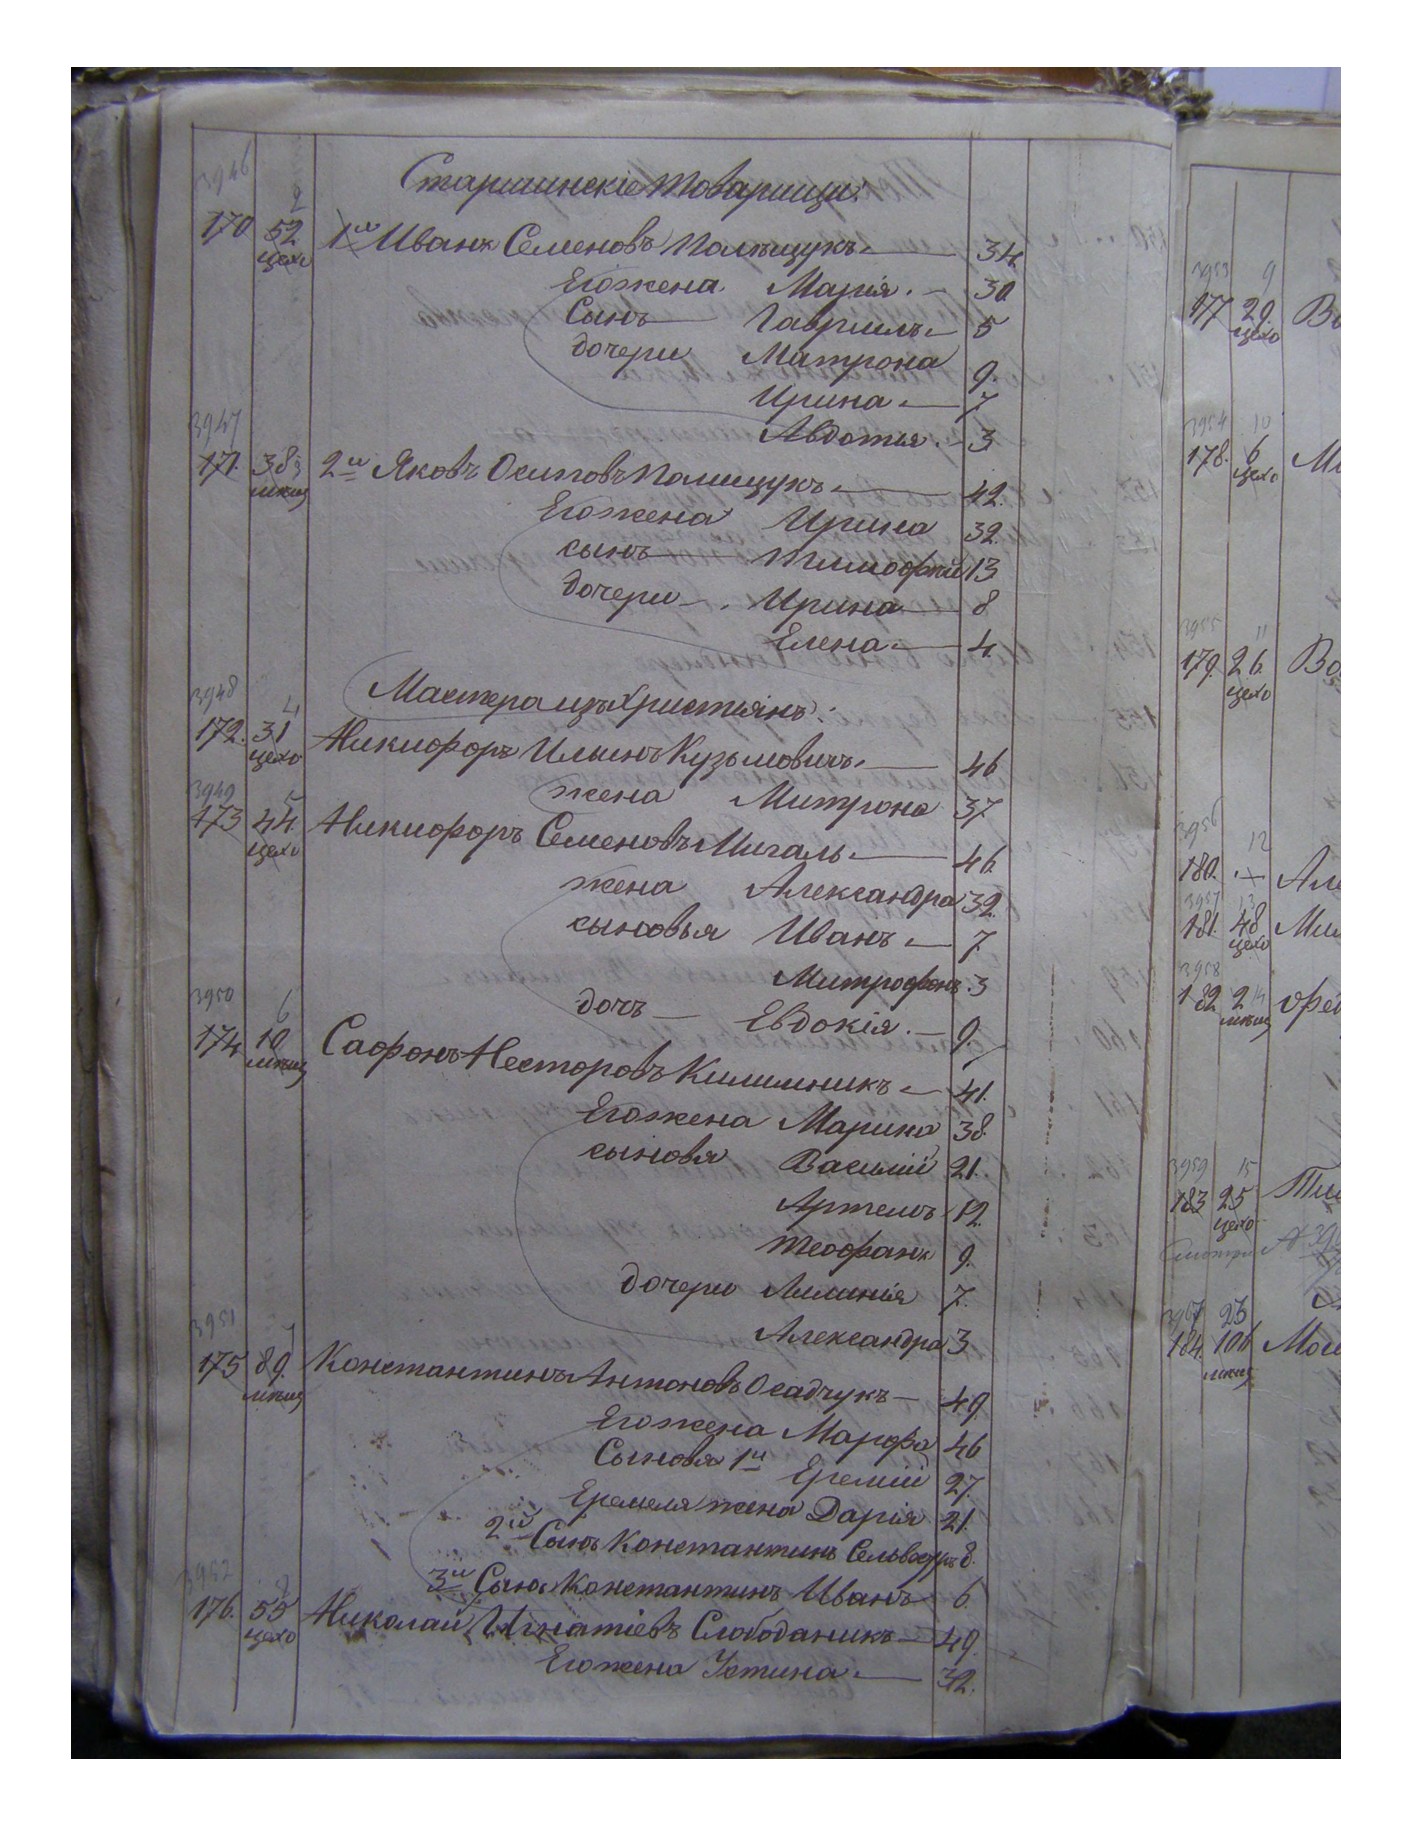 3946
Старшинскіе товарищи:
2
170 52 1й Иванъ Семеновъ Полищукъ — 34.
цехо
Его жена Марія. — 30
Сынъ Гавриилъ — 5
дочери Матрона 9.
Ирина — 7
Авдотья. — 3
3947
171. 38 3 2й Яковъ Осиповъ Полищукъ — 42.
мѣщ
Его жена Ирина 32.
сынъ Тимофей 13
дочери — . Ирина — 8
Елена — 4.
3948 4
Мастера изъ Христіянъ:
172. 31 Никифоръ Ильинъ Кузьмовичъ. — 46
цехо
жена Митрона 37
3949 5
173 44. Никифоръ Семеновъ Мигаль — 46.
цехо
жена Александра 32.
сыновья Иванъ — 7.
Митрофонъ 3
дочь — Евдокія. — 9.
3950 6
174 10 Сафонъ Несторовъ Килимникъ — 41.
мѣщ
Его жена Марина 38.
сыновя Василій 21.
Артемъ 12.
Теофанъ 9.
дочери 7.
Александра 3
3951 7
175 89. Константинъ Антоновъ Осадчукъ — 49
мѣщ
Его жена Марфа 46
Сыновя 1й Еремій 27.
Еремея жена Дарія 21.
2й Сынъ Константинъ 8.
3й Сынъ Константинъ Иванъ 6
3952
176. 55 Николай Игнатіевъ Слободаникъ — 49.
цехо
Его жена Устина. — 32.
3953 9
177 29.
цехо
3954 10
178. 6
цехо
3955 11
179. 26.
цехо
3956 12
180. —
3957 13
181. 48
цехо
3958
182 2 14
мѣщ
3959 15
183 25
цехо
Смотри
184. 106
мѣщ